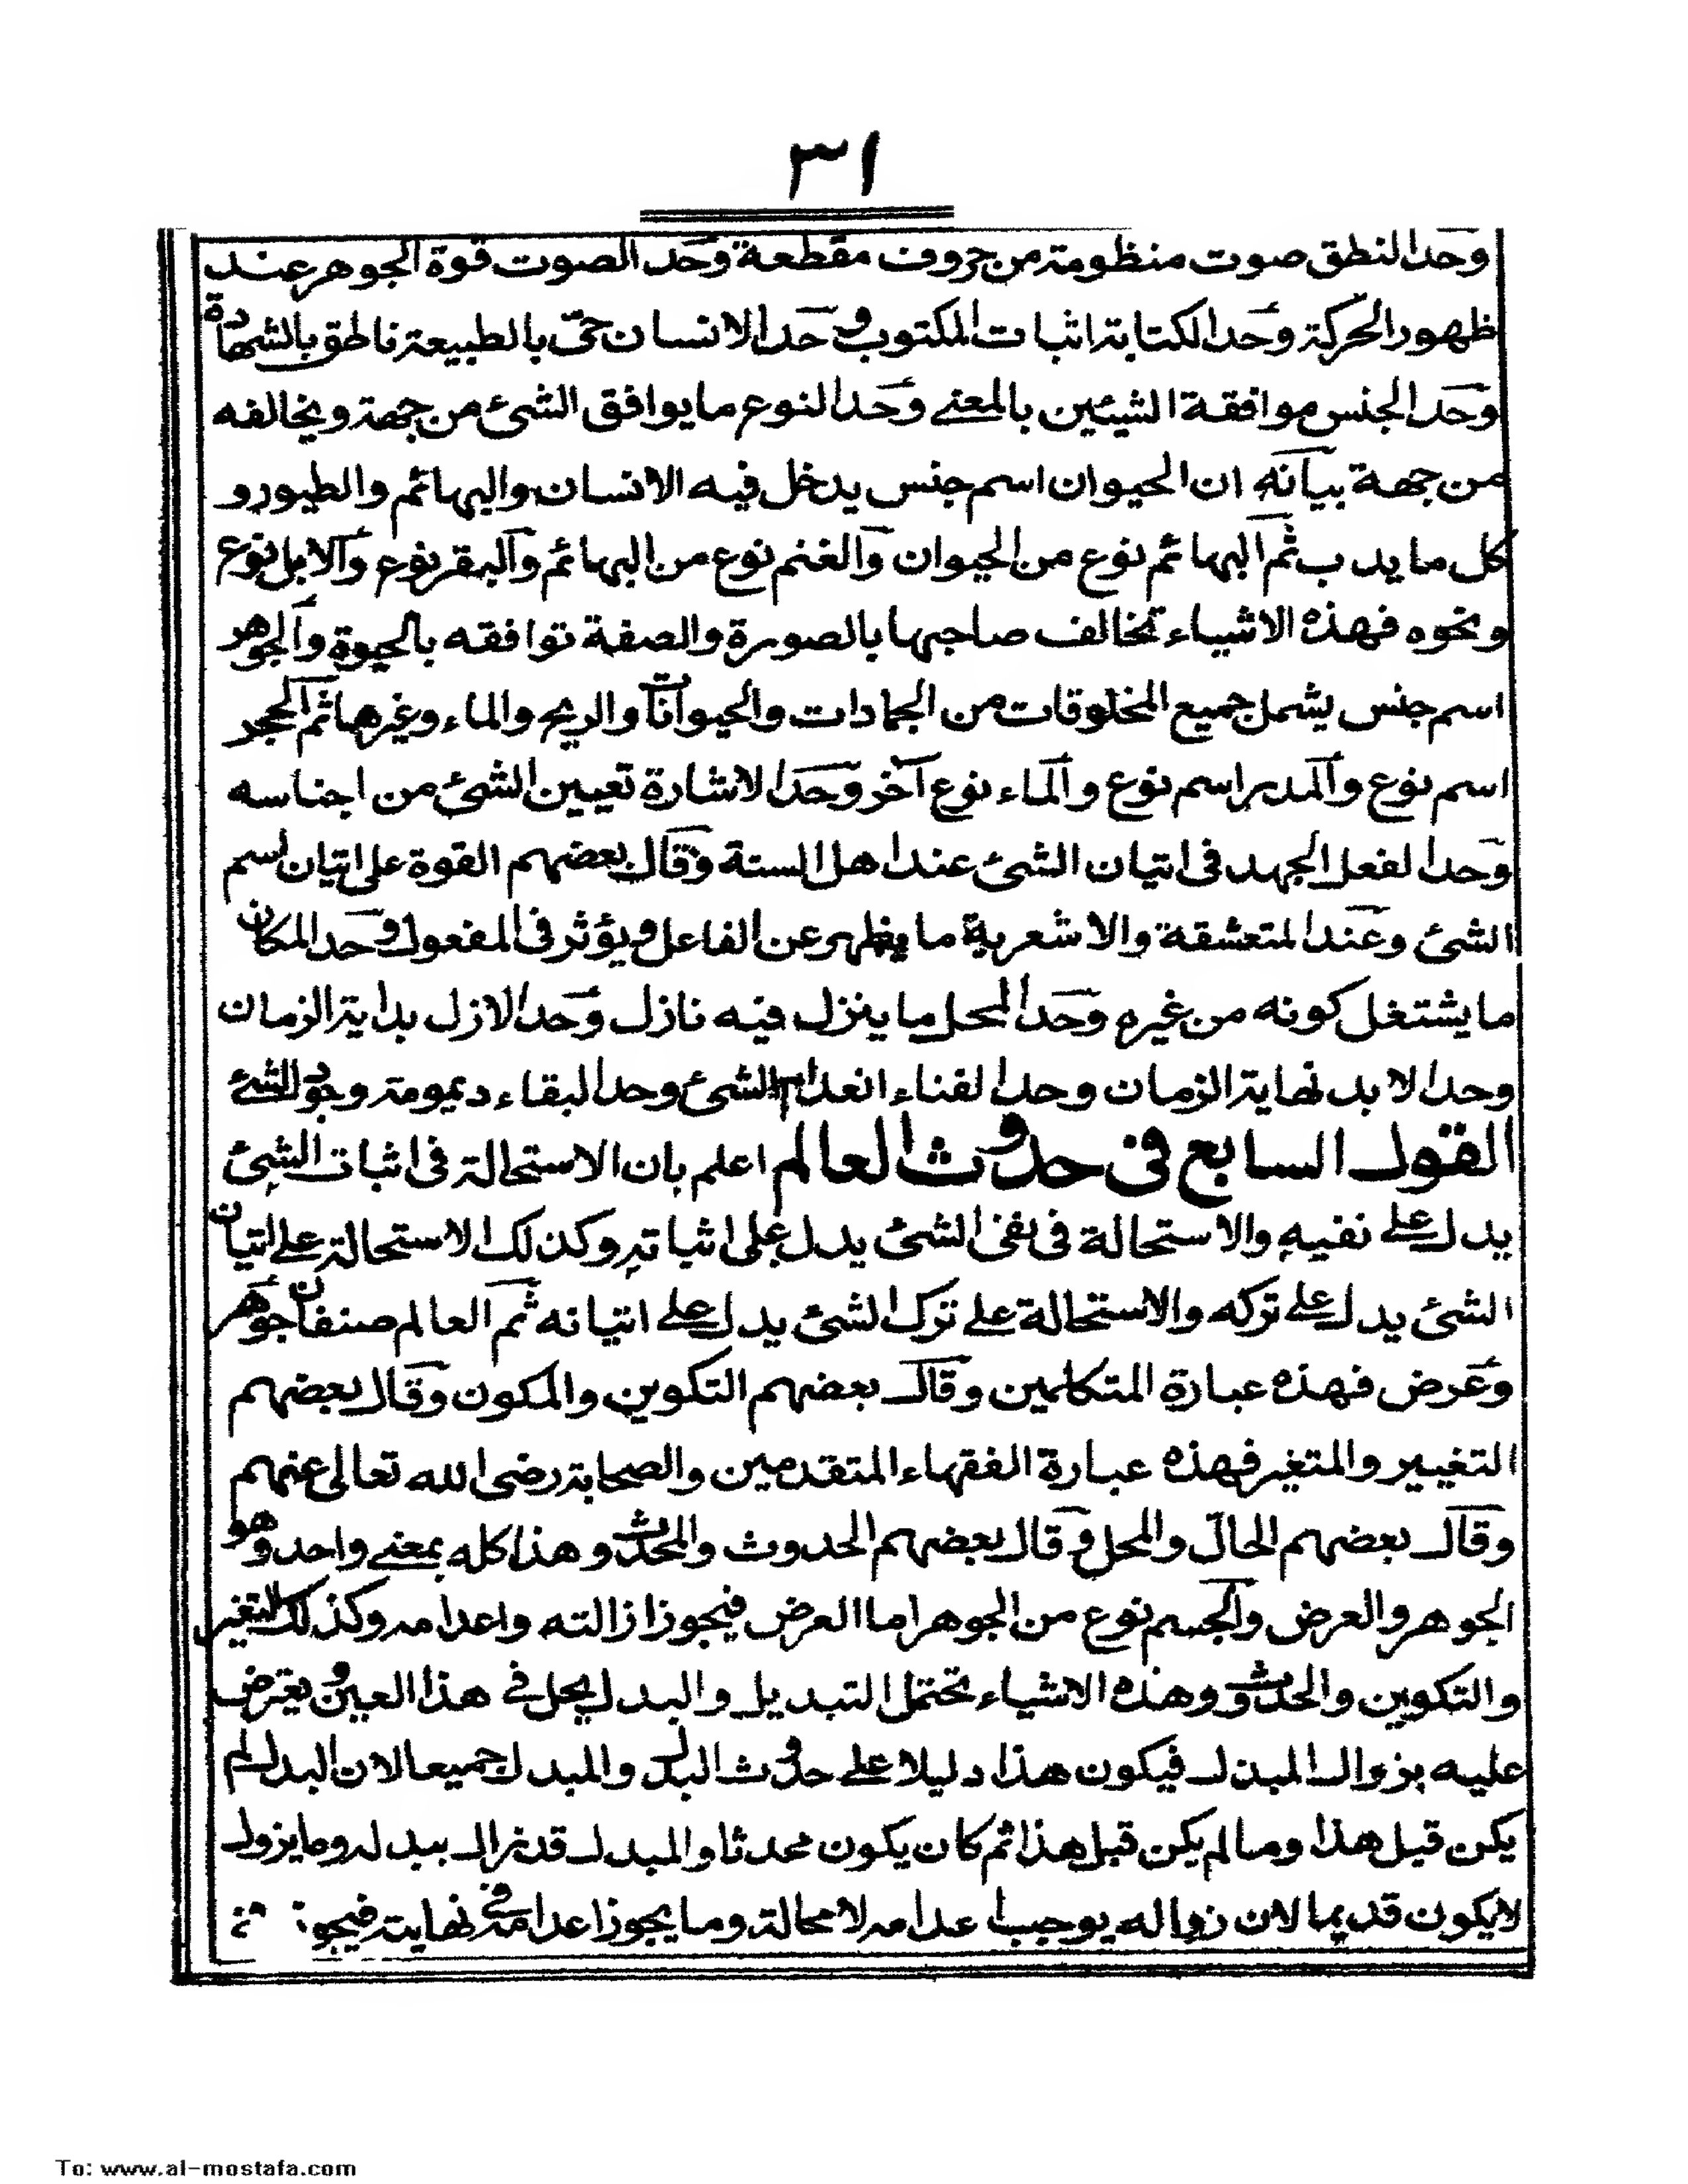 ٣١
وحد النطق صوت منظومة من حروف مقطعة وحد الصوت قوة الجوهر عند
ظهور الحركة وحد الكتابة اثبات المكتوب وحد الانسان حيّ بالطبيعة ناطق بالشهادة
وحد الجنس موافقة الشيئين بالمعنى وحد النوع ما يوافق الشئ من جهة ويخالفه
من جهة بيانه ان الحيوان اسم جنس يدخل فيه الانسان والبهائم والطيور و
كل ما يدب ثم البهائم نوع من الحيوان والغنم نوع من البهائم والبقر نوع والابل نوع
ونحوه فهذه الاشياء تخالف صاحبها بالصورة والصفة توافقه بالحيوة والجوهر
اسم جنس يشمل جميع المخلوقات من الجمادات والحيوانات والريح والماء وغيرها ثم الحجر
اسم نوع والمدر اسم نوع والماء نوع آخر وحد الاشارة تعيين الشئ من اجناسه
وحد الفعل الجهد فى اتيان الشئ عند اهل السنة وقال بعضهم القوة على اتيان اسم
الشئ وعند المتعشقة والاشعرية ما يظهر عن الفاعل ويؤثر فى المفعول وحد المكان
ما يشتغل كونه من غيره وحد المحل ما ينزل فيه نازل وحد الازل بداية الزمان
وحد الابد نهاية الزمان وحد الفناء انعدام الشئ وحد البقاء ديمومة وجود الشئ
القول السابع فى حدوث العالم اعلم بان الاستحالة فى اثبات الشئ
يدل على نفيه والاستحالة فى نفى الشئ يدل على اثباته وكذلك الاستحالة على اتيان
الشئ يدل على تركه والاستحالة على ترك الشئ يدل على اتيانه ثم العالم صنفان جوهر
وعرض فهذه عبارة المتكلمين وقال بعضهم التكوين والمكون وقال بعضهم
التغيير والمتغير فهذه عبارة الفقهاء المتقدمين والصحابة رضى الله تعالى عنهم
وقال بعضهم الحالّ والمحل وقال بعضهم الحدوث والمحدث وهذا كله بمعنى واحد وهو
الجوهر والعرض والجسم نوع من الجوهر اما العرض فيجوز ازالته واعدامه وكذلك التغير
والتكوين والحدوث وهذه الاشياء تحتمل التبديل والبدل يحل فى هذا العين ويعترض
عليه بزوال المبدل فيكون هذا دليلا على حدوث البدل والمبدل جميعا لان البدل لم
يكن قبل هذا وما لم يكن قبل هذا ثم كان يكون محدثا والمبدل قد زال ببدله وما يزول
لا يكون قديما لان زواله يوجب اعدامه لا محالة وما يجوز اعدامه فى نهايته فيجوز
To: www.al-mostafa.com